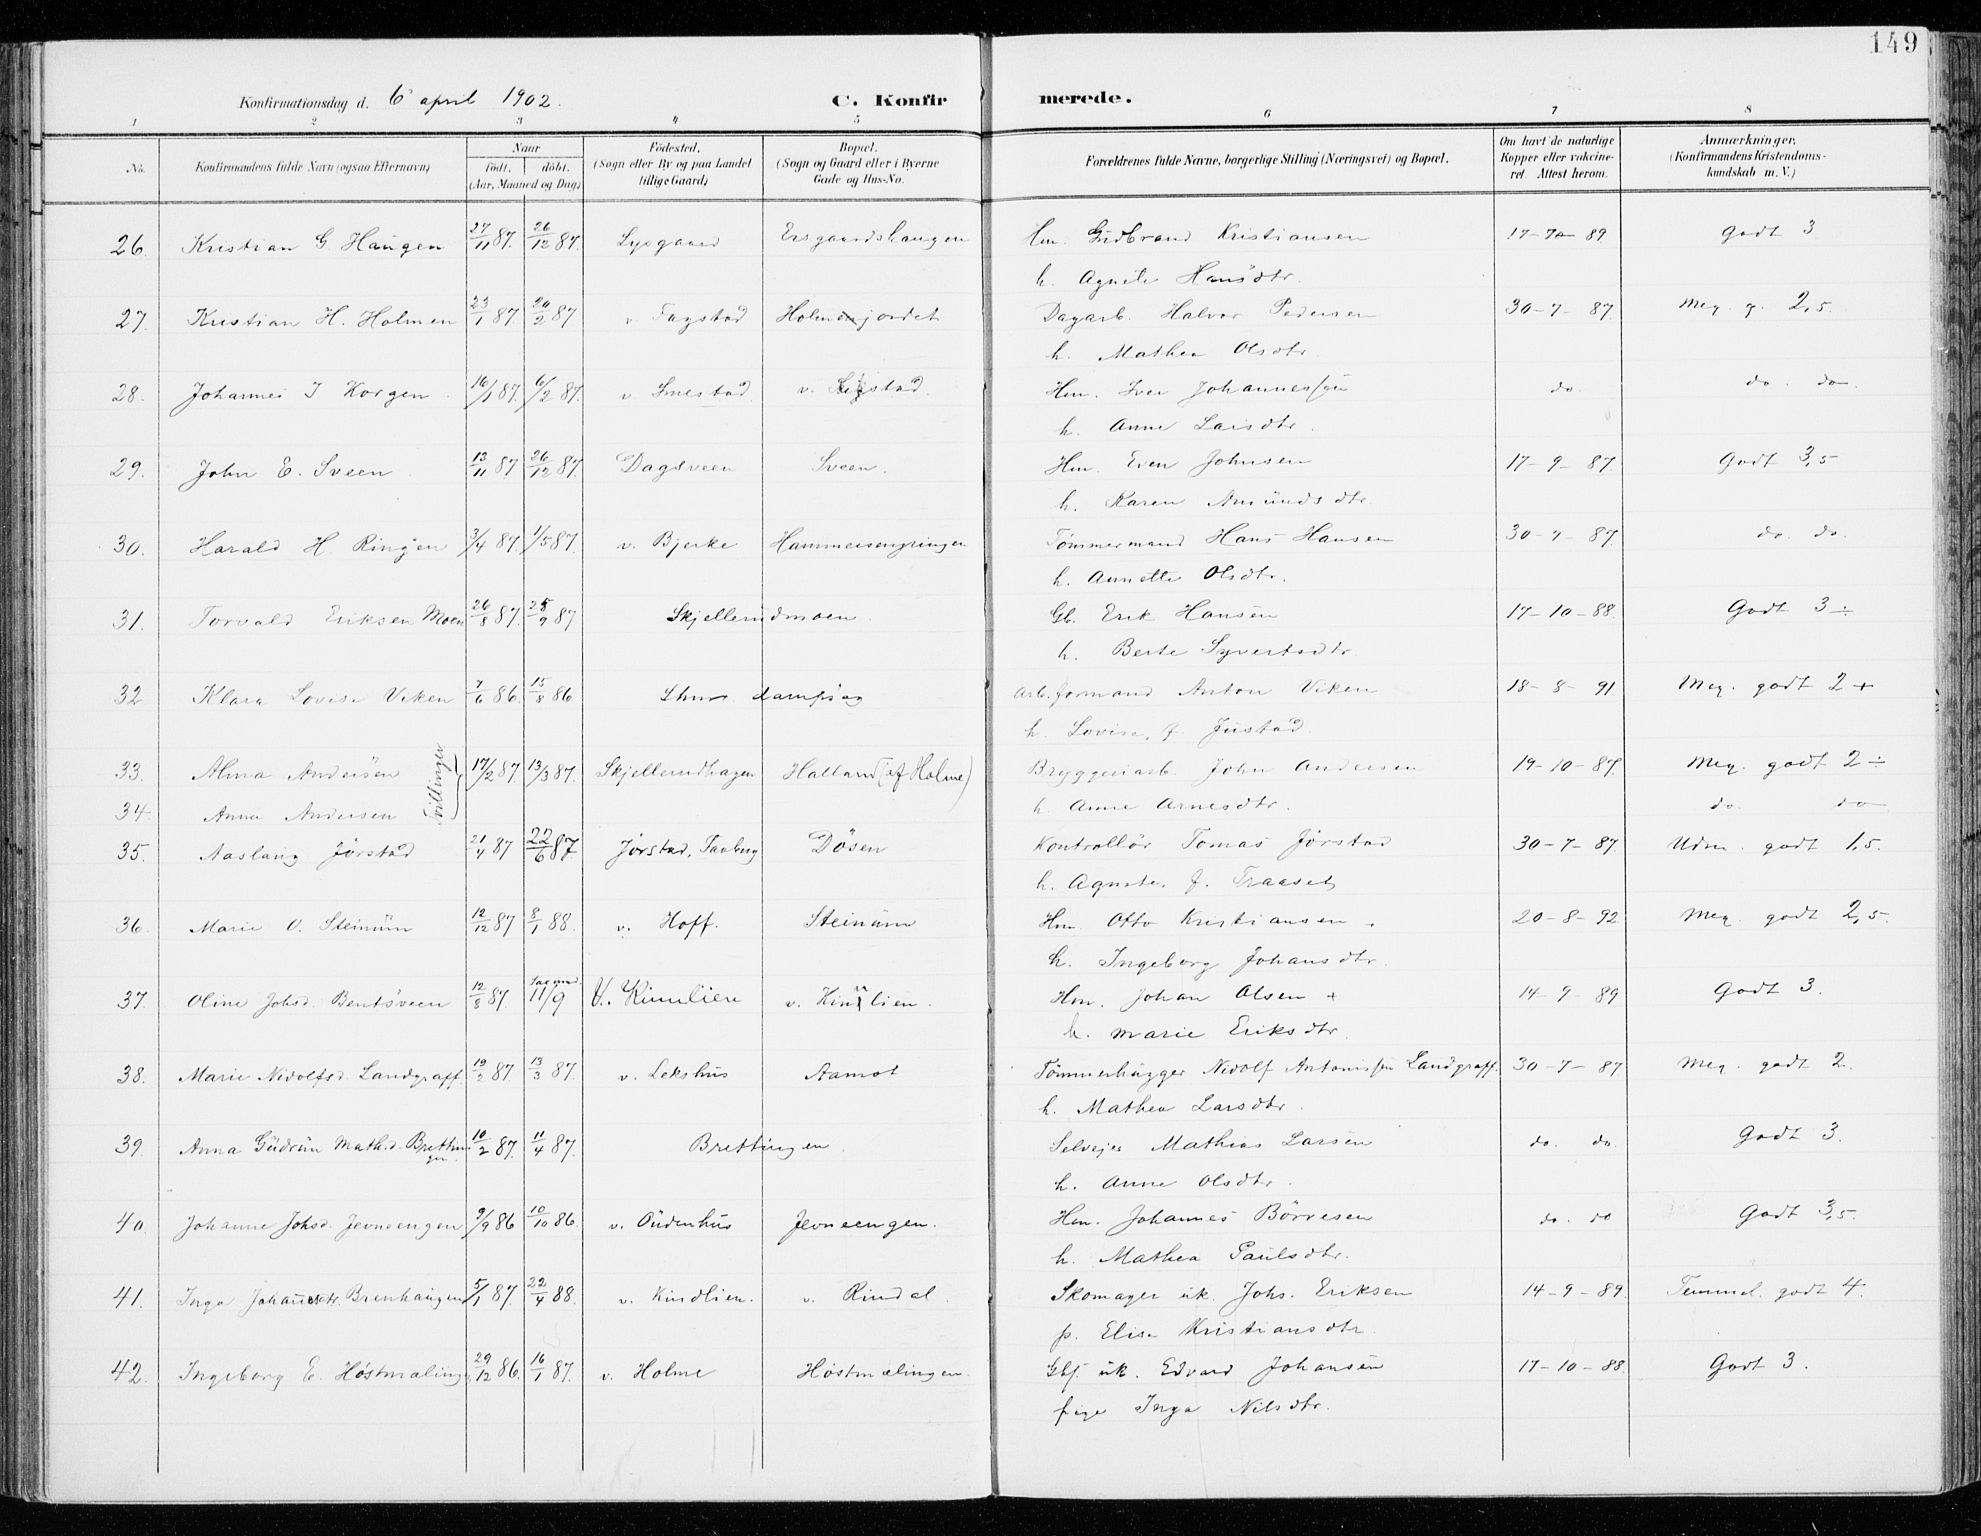 149
Konfirmationsdag d. 6 april 1902. C. Konfirmerede.
1 2 3 4 5 6 7 8
No. Konfirmandens fulde Navn (ogsaa Efternavn) Naar født. døbt. (Aar, Maaned og Dag) Fødested. (Sogn eller By og paa Landet tillige Gaard) Bopæl. (Sogn og Gaard eller i Byerne Gade og Hus-No. Forældrenes fulde Navne, borgerlige Stilling (Næringsvei) og Bopæl. Om havt de naturlige Kopper eller vakcineret. Attest herom. Anmærkninger, (Konfirmandens Kristendomskundskab m. V.)
26. Kristian G Haugen 27/11 87. 26/12 87. Lysgaard Ersgaardshaugen Hm. Gudbrand Kristiansen 17-7- 89 Godt 3
h. Agnete Hansdtr.
27. Kristian H. Holmen 23/1 87. 20/2 87 v Fagstad Holmenjordet Dagarb. Halvor Pedersen 30-7-87 Meg. g. 2,5.
h. Mathea Olsdtr.
28. Johannes I Korgen 16/1 87. 6/2 87. v Smestad v. Sigstad. Hm. Iver Johannessen do. do. do.
h. Anne Larsdtr.
29. John E. Sveen 13/11 87 26/12 87. Dagsveen Sveen. Hm. Even Johnsen 17-9-87. Godt 3,5
h. Karen Amundsdtr.
30. Harald H. Ringen 3/4 87. 1/5 87. v. Bjerke Hammersengringen Tømmermand Hans Hansen 30-7-87. do. do.
h. Annette Olsdtr.
31. Torvald Eriksen Moen 26/8 87. 25/9 87 Skjellerudmoen. Gb. Erik Hansen 17-10-88. Godt 3 ÷
h. Berte Syverstadtr.
32 Klara Lovise Viken 7/6 86. 15/8 86 Lhmr dampsag arb.formand Anton Viken 18-8-91 Meg. godt 2 +
h. Lovise, f. Justad
33. Alma Andersen 17/2 87. 13/3 87. Skjellerudhagen Halland (af Holme) Bryggeriarb. John Andersen 19-10-87. Meg. godt 2 ÷
Tvillinger
34 Anna Andersen h Anne Arnesdtr. do. do
35. Aaslaug Jørstad 21/4 87 22/6 87 Jørstad, Faaberg Døsen Kontrollør Tomas Jørstad 30-7-87. Udm. godt 1,5.
h. Agnete, f. Traaset
36. Marie O. Steinum 12/12 87 8/1 88. v. Hoff. Steinum Hm. Otto Kristiansen 20-8-92 Meg. godt 2,5.
h. Ingeborg Johansdtr.
37. Oline Johsd. Bentsveen 12/8 87. 11/9 V. Kinnlien v. Kinnlien. Hm. Johan Olsen + 14-9-89 Godt 3.
h. Marie Eriksdtr.
38. Marie Nidolfsd. Landgraff 19/2 87. 13/3 87. v. Lekshus Aamot Tømmerhugger Nidolf Antonissen Landgraff. 30-7-87 Meg. godt 2.
h. Mathea Larsdtr.
39. Anna Gudrun Math.d. Brettingen. 10/2 87. 11/4 87. Brettingen Selveier Mathias Larsen do. do. Godt 3.
h. Anne Olsdtr.
40. Johanne Johsd. Jevneengen 9/9 86 10/10 86. v. Oudenhus Jevneengen. Hm. Johannes Børresen do. do Godt 3,5.
h. Mathea Paulsdtr.
41. Inga Johansdtr. Brenhaugen 5/1 87. 22/4 88. v. Kindlien. v. Rindal. Skomager uk. Johs. Eriksen 14-9-89. Temmel. godt 4.
p. Elise Kristiansdtr.
42. Ingeborg E. Høstmæling 29/12 86. 16/1 87. v. Holme Høstmælingen. Gbf. uk. Edvard Johansen 17-10-88. Godt 3.
pige Inga Nilsdtr.